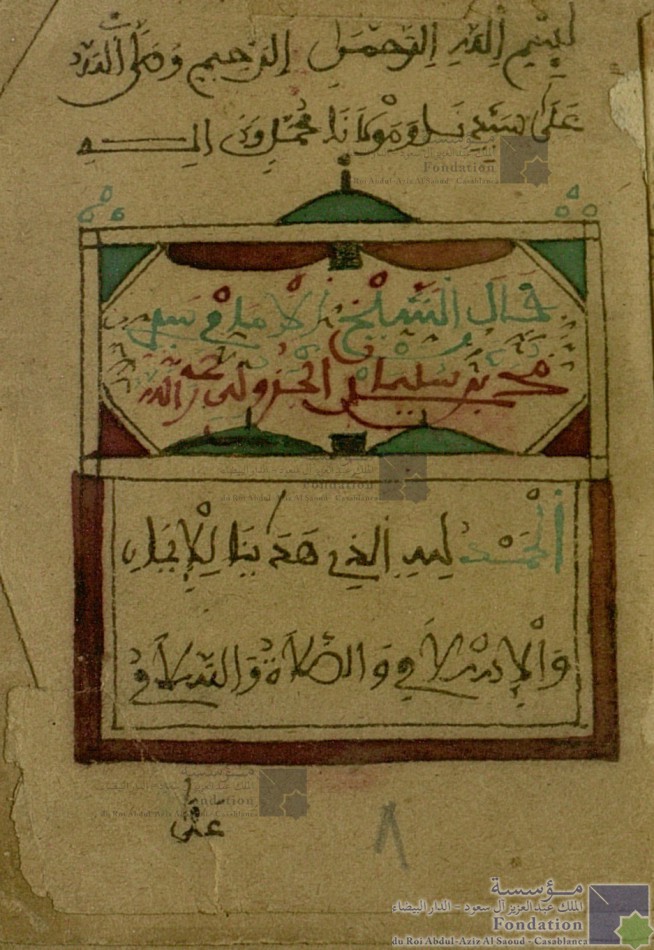 بِسْمِ اللهِ الرَّحْمَٰنِ الرَّحِيمِ وَصَلَّى اللهُ
عَلَى سَيِّدِنَا وَمَوْلَانَا مُحَمَّدٍ وَعَلَى آلِهِ
قَالَ الشَّيْخُ الْإِمَامُ سيدي
محمد بن سليمان الجزولي رحمه الله
اَلْحَمْدُ لِلهِ الَّذِي هَدَيْنَا لِلْإِيمَانِ
وَالْإِسْلَامِ وَالصَّلَاةُ وَالسَّلَامُ
عَلَى
٨
مؤسسة
الملك عبد العزيز آل سعود - الدار البيضاء
Fondation
du Roi Abdul-Aziz Al Saoud - Casablanca